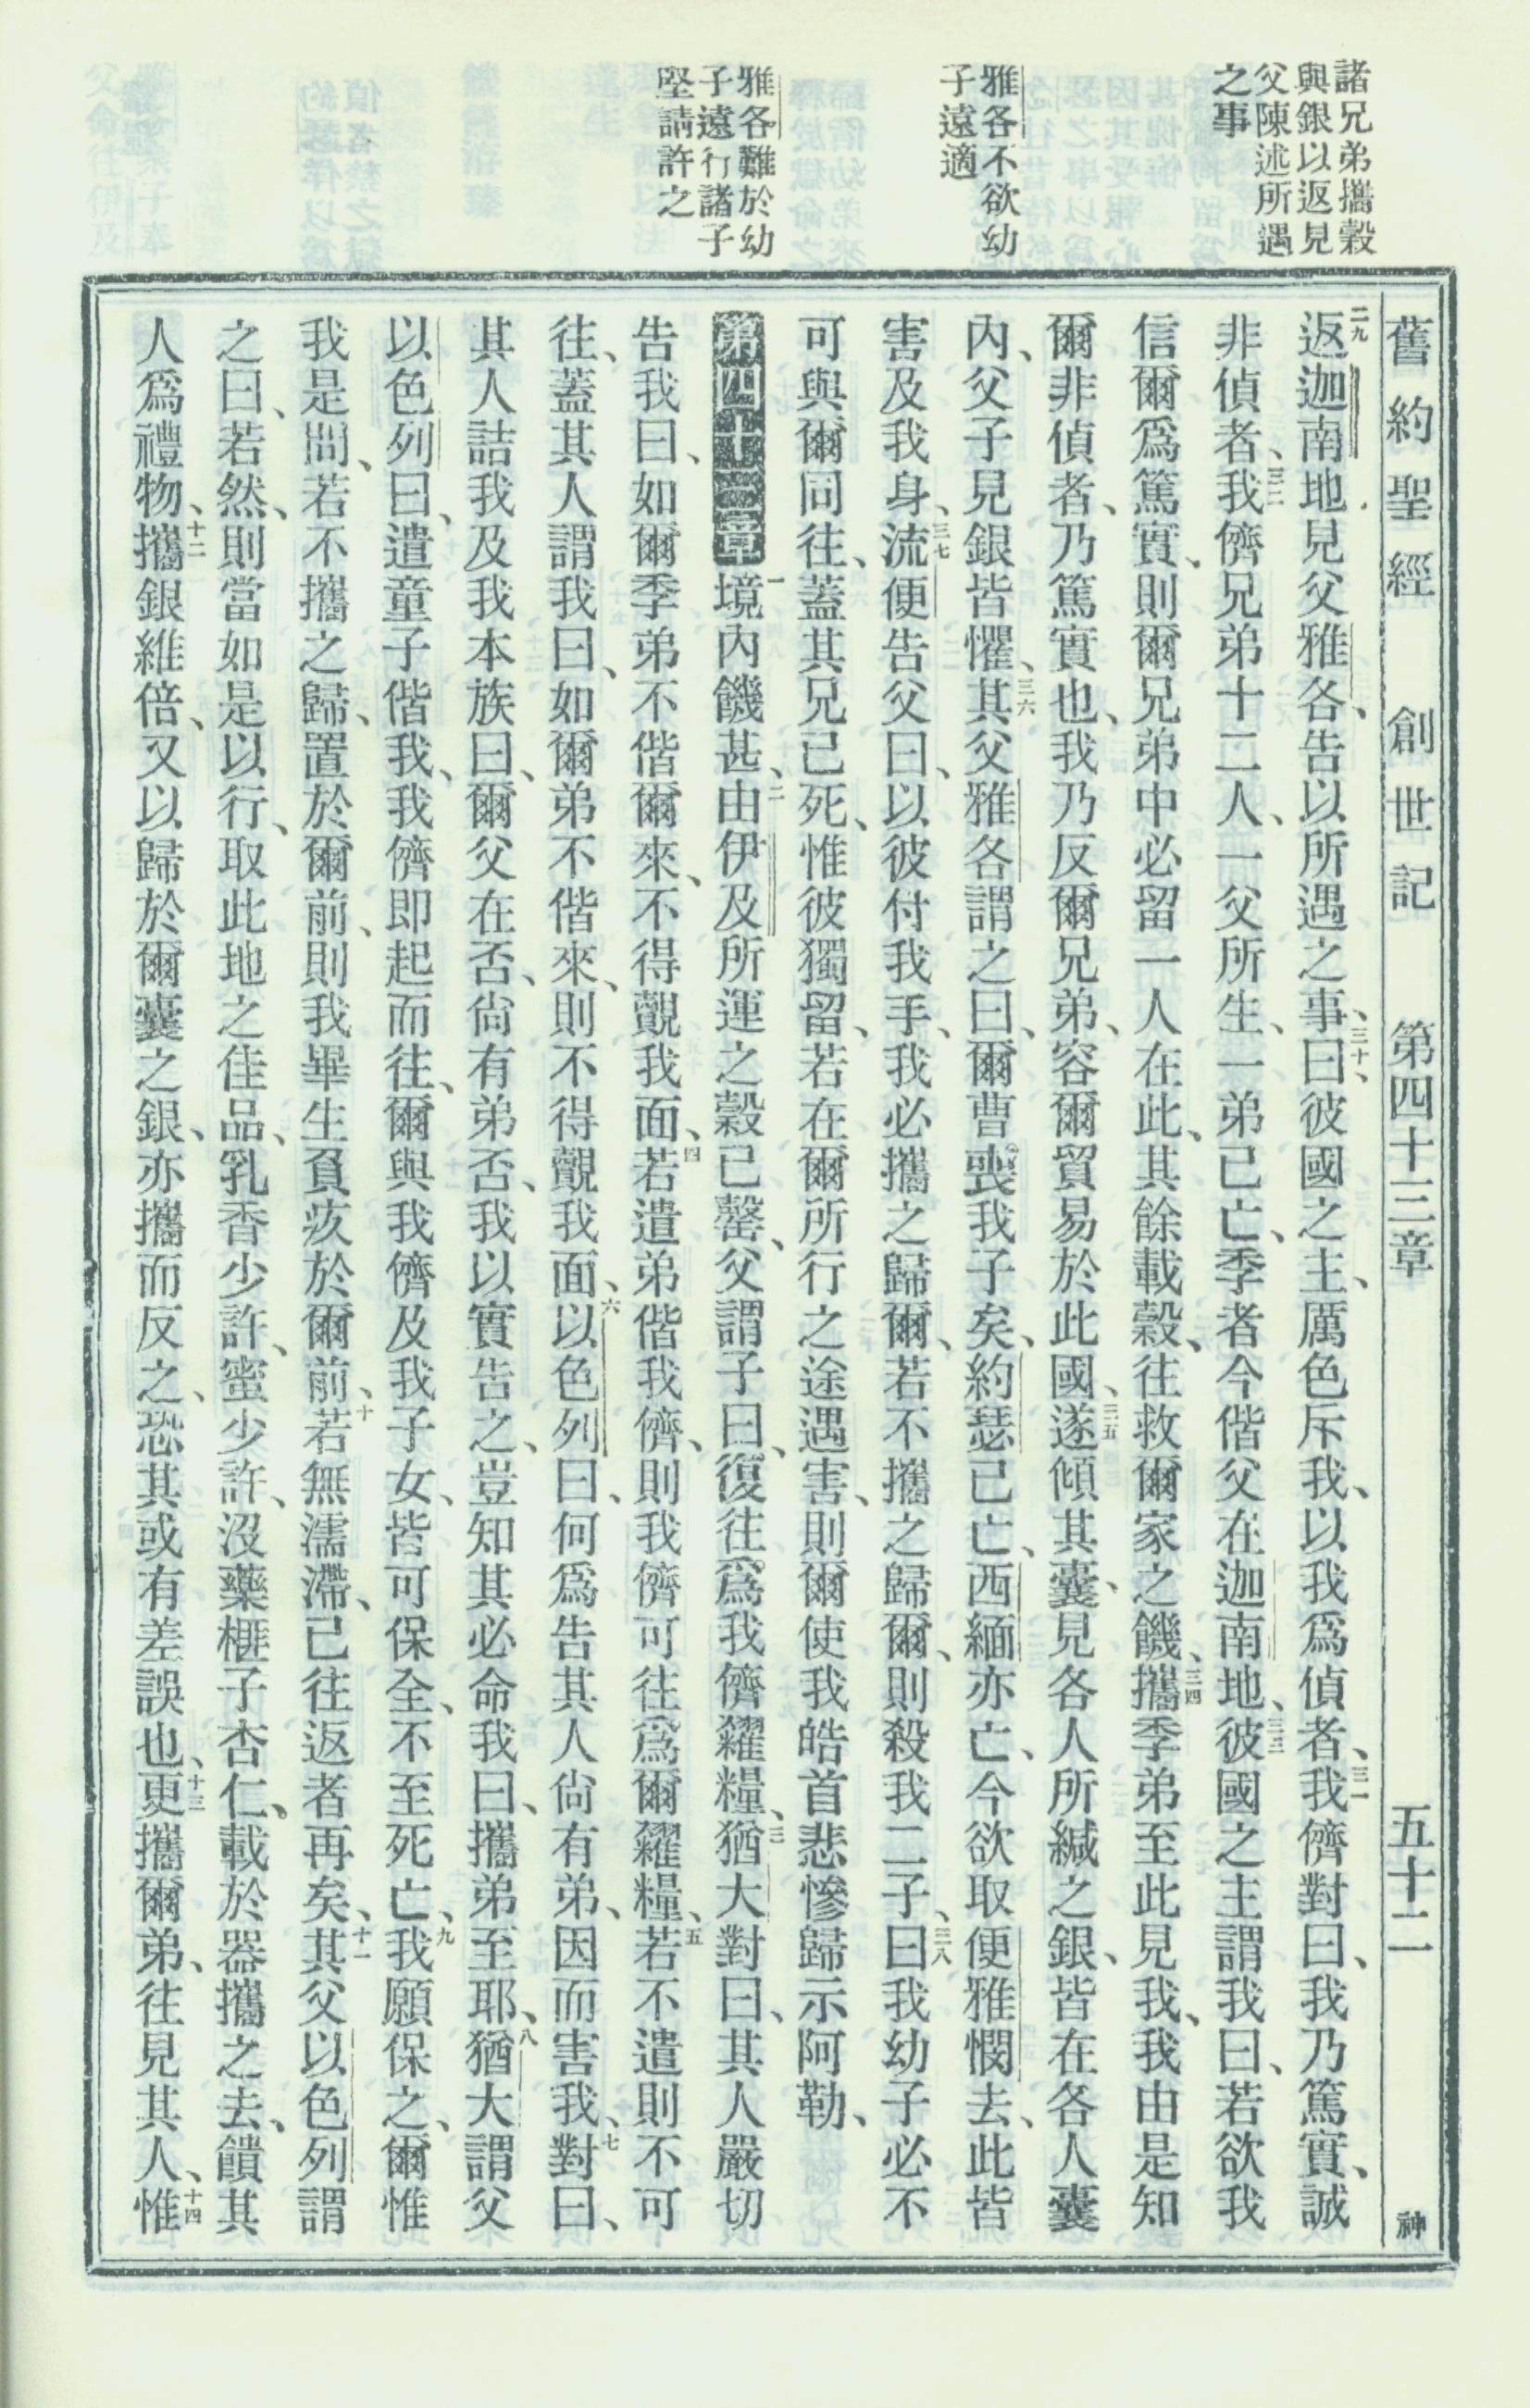 諸兄弟攜穀
與銀以返見
父陳述所遇
之事
雅各不欲幼
子遠適
雅各難於幼
子遠行諸子
堅請許之
舊約聖經 創世記 第四十三章 五十二 神
二九返迦南地見父雅各、告以所遇之事、三十曰、彼國之主、厲色斥我、以我爲偵者、三一我儕對曰、我乃篤實、誠
非偵者、三二我儕兄弟十二人、一父所生、一弟已亡、季者今偕父在迦南地、三三彼國之主謂我曰、若欲我
信爾爲篤實、則爾兄弟中必留一人在此、其餘載穀、往救爾家之饑、三四攜季弟至此見我、我由是知
爾非偵者、乃篤實也、我乃反爾兄弟、容爾貿易於此國、三五遂傾其囊、見各人所緘之銀、皆在各人囊
內、父子見銀皆懼、三六其父雅各謂之曰、爾曹喪我子矣、約瑟已亡、西緬亦亡、今欲取便雅憫去、此皆
害及我身、三七流便告父曰、以彼付我手、我必攜之歸爾、若不攜之歸爾、則殺我二子、三八曰我幼子必不
可與爾同往、蓋其兄已死、惟彼獨留、若在爾所行之途遇害、則爾使我皓首悲慘歸示阿勒、
第四十三章 一境內饑甚、二由伊及所運之穀已罄、父謂子曰、復往爲我儕糴糧、三猶大對曰、其人嚴切
告我曰、如爾季弟不偕爾來、不得覿我面、四若遣弟偕我儕、則我儕可往爲爾糴糧、五若不遣則不可
往、蓋其人謂我曰、如爾弟不偕來、則不得覿我面、六以色列曰、何爲告其人尙有弟、因而害我、七對曰、
其人詰我及我本族曰、爾父在否、尙有弟否、我以實告之、豈知其必命我曰、攜弟至耶、八猶大謂父
以色列曰、遣童子偕我、我儕即起而往、爾與我儕及我子女、皆可保全、不至死亡、九我願保之、爾惟
我是問、若不攜之歸、置於爾前、則我畢生負疚於爾前、十若無濡滯、已往返者再矣、十一其父以色列謂
之曰、若然、則當如是以行、取此地之佳品、乳香少許、蜜少許、沒藥榧子杏仁、載於器攜之去、饋其
人爲禮物、十二攜銀維倍、又以歸於爾囊之銀、亦攜而反之、恐其或有差誤也、十三更攜爾弟、往見其人、十四惟